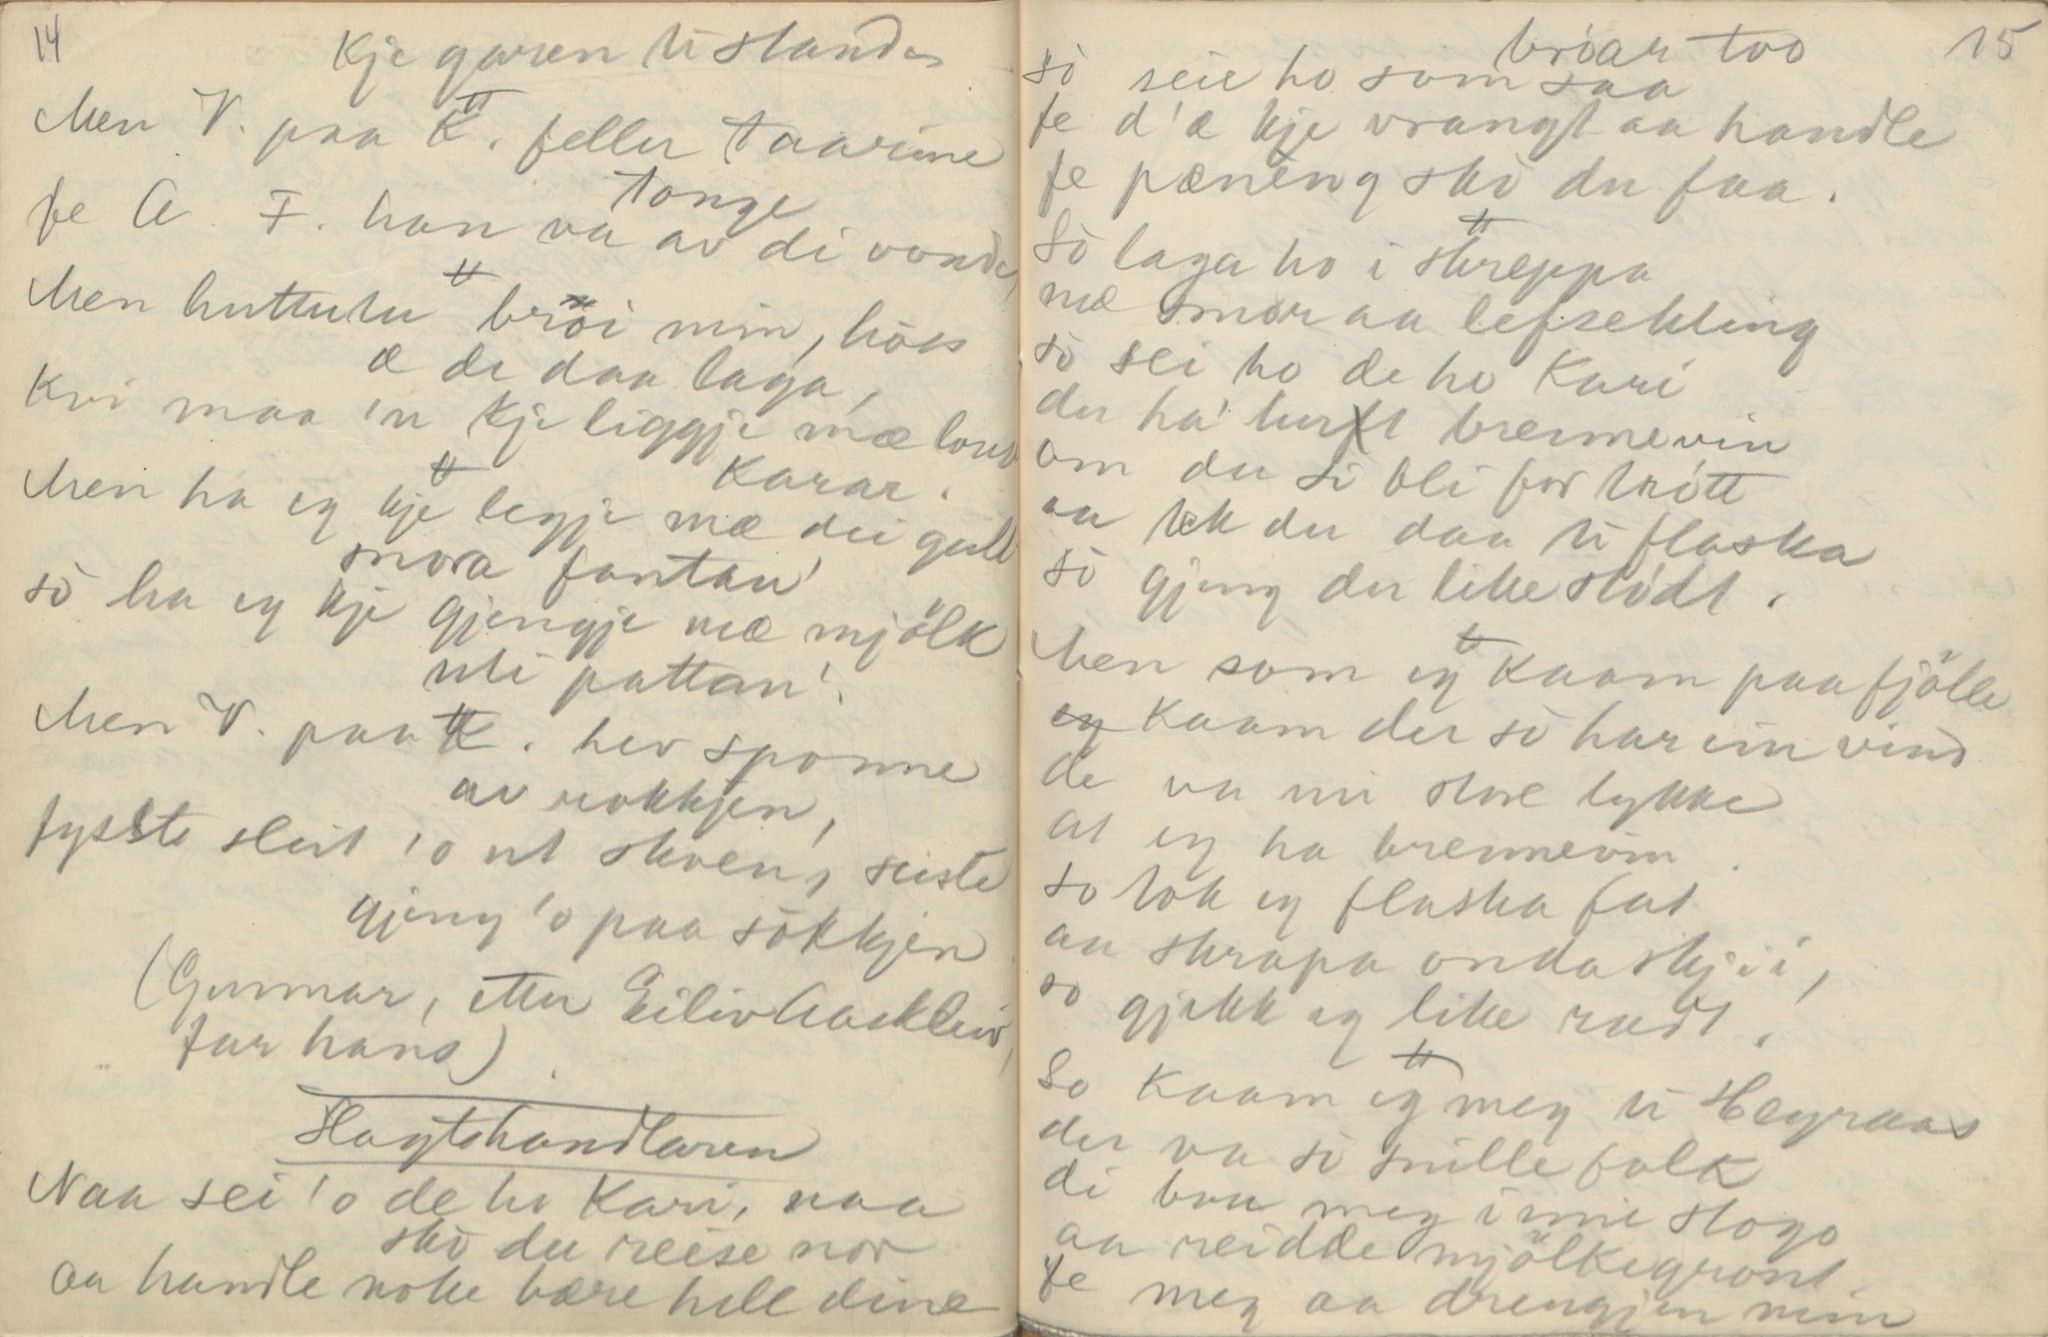 14
Kje garen ti standes
Men V. paa K. feller taarine
fe A. F. han va av di vonde
tonge
Men huttutu brói min, hóss
æ de daa laga,
Kvi maa 'n kje liggje mæ lond
Karar.
Men ha eg kje legje mæ dei gull
snora fantan'
sò ha eg kje gjengje mæ mjölk
uti pattan'.
Men V. paa K. hev sponne
av rokkjen,
fysste sleit 'o ut skoen, siste
gjeng 'o paa sòkkjen
(Gunnar, etter Eiliv Aakleiv,
far hans).
Slagtshandlaren
Naa sei 'o de ho Kari, naa
skò du reise nor
aa handle noke bære hell dine
15
brøar too
sò seie ho som saa
fe d'æ kje vrangt aa handle
fe pæning skò du faa.
Sò laga ho i skreppa
mæ smør aa lefsekling
sò sei ho de ho Kari
du ha' turft brennevin
om du si bli for trótt
aa tek du daa ti flaska
sò gjeng du like stødt.
Men som eg kaam paa fjölle
eg kaam der sò har ein vind
de va mi store lykke
at eg ha brennevin.
so tok eg flaska fat
aa skrapa onda skjii,
so gjekk eg like radt.
So kaam eg meg ti Hegraas
der va sò snille folk
di bou meg inni stogo
aa reidde mjölkegraut
fe meg aa drengjen min